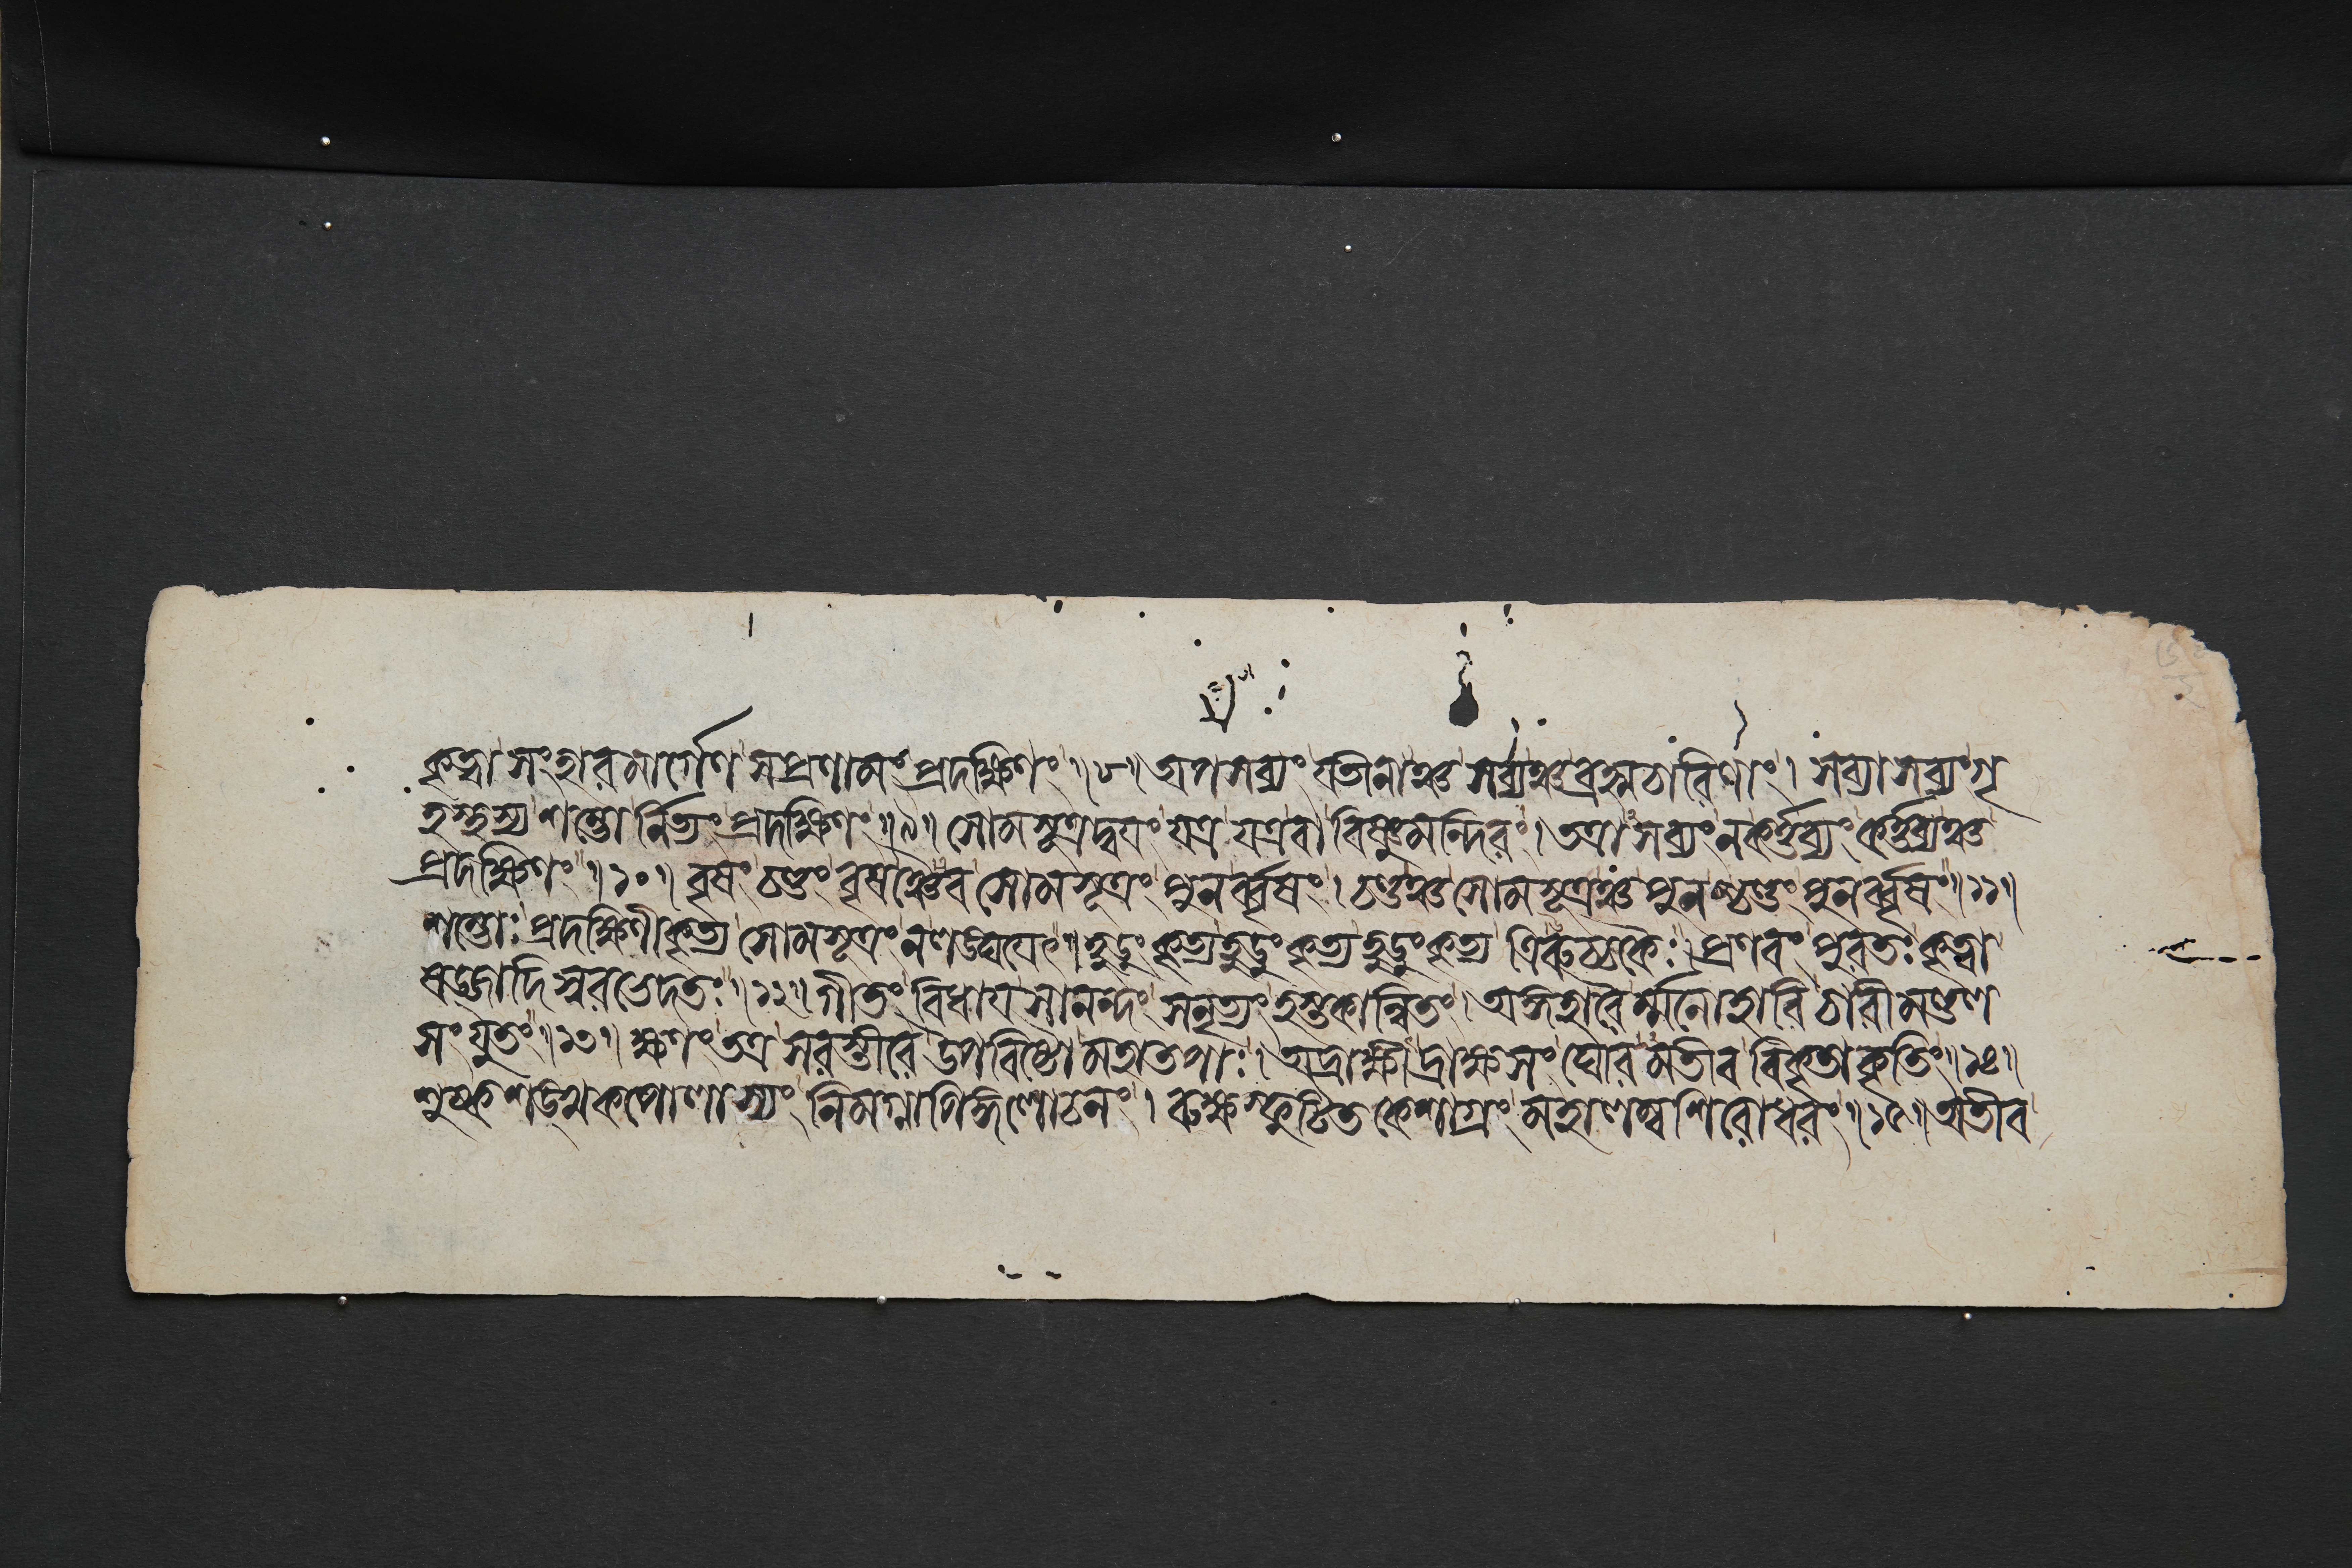 কৃত্বা সংহারমার্গেণ সপ্রণামং প্রদক্ষিণং ॥৮॥ অপসব্যং যতীনাঞ্চ সব্যঞ্চ ব্রহ্মচারিণাং । সব্যাসব্যং গৃ
হস্থস্য শম্ভোর্নিত্যং প্রদক্ষিণং ॥৯॥ সোমসূত্রদ্বয়ং যত্র যত্র বা বিষ্ণুমন্দিরং । তত্রাসব্যং ন কর্ত্তব্যং কর্ত্তব্যঞ্চ
প্রদক্ষিণং ॥১০॥ বৃষং চণ্ডং বৃষঞ্চৈব সোমসূত্রং পুনর্ব্বৃষং । চণ্ডঞ্চ সোমসূত্রঞ্চ পুনশ্চণ্ডং পুনর্ব্বৃষং ॥১১॥
শম্ভোঃ প্রদক্ষিণীকৃত্য সোমসূত্রং ন লঙ্ঘয়েৎ ॥ হুডুং কৃত্য হুডুং কৃত্য হুডুং কৃত্য ত্রিরুচ্চকৈঃ । প্রণবং পুরতঃ কৃত্বা
ষড্জাদিস্বরভেদতঃ ॥১২॥ গীতং বিধায় সানন্দং সনৃত্যং হস্তকান্বিতং । অঙ্গহারৈর্ম্মনোহারি চারীমণ্ডল
সংযুতং ॥১৩॥ ক্ষণং তত্র সরস্তীরে উপবিষ্টো মহাতপাঃ । অদ্রাক্ষীদ্রাক্ষসং ঘোরমতীব বিকৃতাকৃতিং ॥১৪॥
শুষ্কশঙ্খকপোলাস্যং নিমগ্নাপিঙ্গলোচনং । রুক্ষস্ফুটিতকেশাগ্রং মহালম্বশিরোধরং ॥১৫॥ অতীব